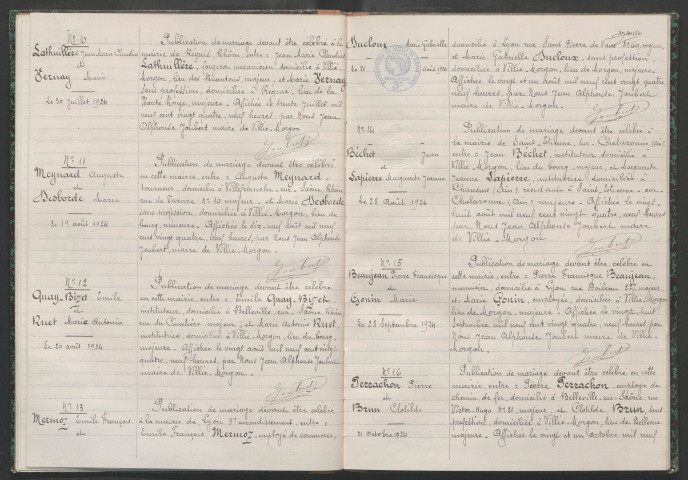 N° 10
Lathuillère Jean Marie Claudius
et
Fernay Marie
Le 30 juillet 1924
Publication de mariage devant être célébré à la
mairie de Regnié, Rhône, entre = Jean Marie Claudius
Lathuillère, forgeron mécanicien, domicilié à Villié-
Morgon, lieu des majeur, et Marie Fernay
sans profession, domiciliée à Regnié, lieu de la
Haute Ronze, majeure. Affichée le trente juillet mil
neuf cent vingt quatre, neuf heures, par Nous Jean
Alphonse Joubert maire de Villié-Morgon
Joubert
N° 11
Meynard Auguste
et
Desborde Marie
Le 19 août 1924
Publication de mariage devant être célébré
en cette mairie, entre = Auguste Meynard
tourneur, domicilié à Villefranche-sur-Saône, Rhône
rue de Tarare N° 10 majeur, et Marie Desborde
sans profession, domiciliée à Villié-Morgon, lieu du
bourg, mineure. Affichée le dix-neuf août mil neuf
cent vingt quatre, neuf heures, par Nous Jean Alphonse
Joubert, maire de Villié-Morgon.
Joubert
N° 12
Quay-Bizet Emile
et
Ruet Marie Antonia
Le 20 août 1924
Publication de mariage devant être célébré
en cette mairie, entre = Emile Quay-Bizet
instituteur, domicilié à Belleville-sur-Saône, Rhône
rue du Cimetière majeur; et Marie Antonia Ruet
institutrice, domiciliée à Villié-Morgon, lieu du bourg,
majeure. Affichée le vingt août mil neuf cent vingt
quatre, neuf heures, par Nous Jean Alphonse Joubert,
maire de Villié-Morgon.
Joubert
N° 13
Mermoz Emile François
et
Publication de mariage devant être célébré
à la mairie de Lyon 5e arrondissement, entre =
Emile François Mermoz, employé de commerce,
Ducloux Marie Gabrielle
Le 21 août 1924
domicilié à Lyon rue Saint Pierre de Vaise N° 60, majeur,
et Marie Gabrielle Ducloux, sans profession,
domiciliée à Villié-Morgon, lieu de Morgon, majeure.
Affichée le vingt et un août mil neuf cent vingt quatre
neuf heures, par Nous Jean Alphonse Joubert
maire de Villié-Morgon.
Joubert
N° 14
Béchet Jean
et
Lapierre Marguerite Jeanne
Le 28 Août 1924
Publication de mariage devant être célébré à
la mairie de Saint-Etienne-sur-Chalaronne (Ain)
entre = Jean Béchet, instituteur, domicilié à
Villié-Morgon, lieu du bourg, majeur, et Marguerite
Jeanne Lapierre, institutrice, domiciliée à
Chaneins (Ain) résidant à Saint-Etienne-sur-
Chalaronne (Ain) majeure. Affichée le vingt-
huit août mil neuf cent vingt quatre, neuf heures
par Nous Jean Alphonse Joubert maire
de Villié-Morgon
Joubert
N° 15
Beaujean Pierre Francisque
et
Gonin Marie
Le 28 Septembre 1924
Publication de mariage devant être célébré en
cette mairie, entre = Pierre Francisque Beaujean,
menuisier, domicilié à Lyon rue Boileau majeur
et Marie Gonin, employée, domiciliée à Villié-Morgon
lieu de Morgon, majeure. Affichée le vingt-huit
Septembre mil neuf cent vingt quatre, neuf heures par
Nous Jean Alphonse Joubert maire de Villié-
Morgon.
Joubert
N° 16
Perrachon Pierre
et
Brun Clotilde
21 octobre 1924
Publication de mariage devant être célébré en cette
mairie, entre = Pierre Perrachon, employé de
chemin de fer, domicilié à Belleville-sur-Saône rue
Victor-Hugo N° 21, majeur, et Clotilde Brun, sans
profession, domiciliée à Villié-Morgon, lieu de Bellevue
majeure. Affichée le vingt et un octobre mil neuf